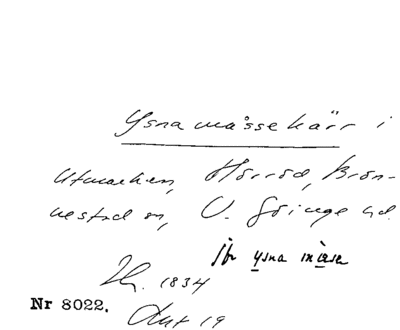 Ysnamåssekärr i
utmarken, Hörröd, Brön-
nestad sn, V. Göinge hd.
Jfr ysna
Hr. 1834
Nr 8022. Akt 19